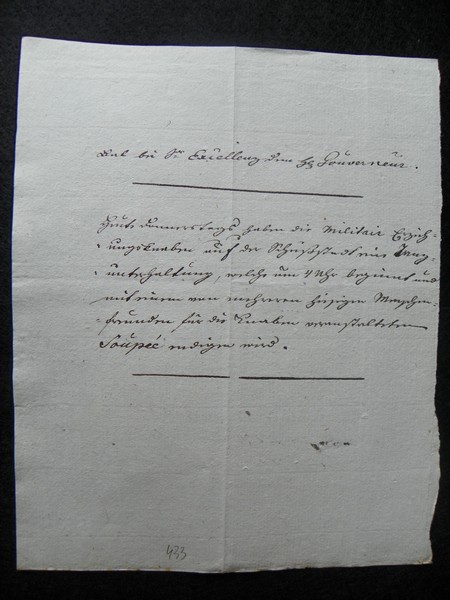 Bal bei Sr Excellenz dem H Gouverneur.
Heute Donnerstags haben die Militair Erzieh-
ungsknaben auf der Schießstadt eine Tanz
unterhaltung, welche um 4 Uhr beginnt und
mit einem von mehreren hiesigen Menschen-
freunden für die Knaben veranstalteten
Soupée endigen wird.
433